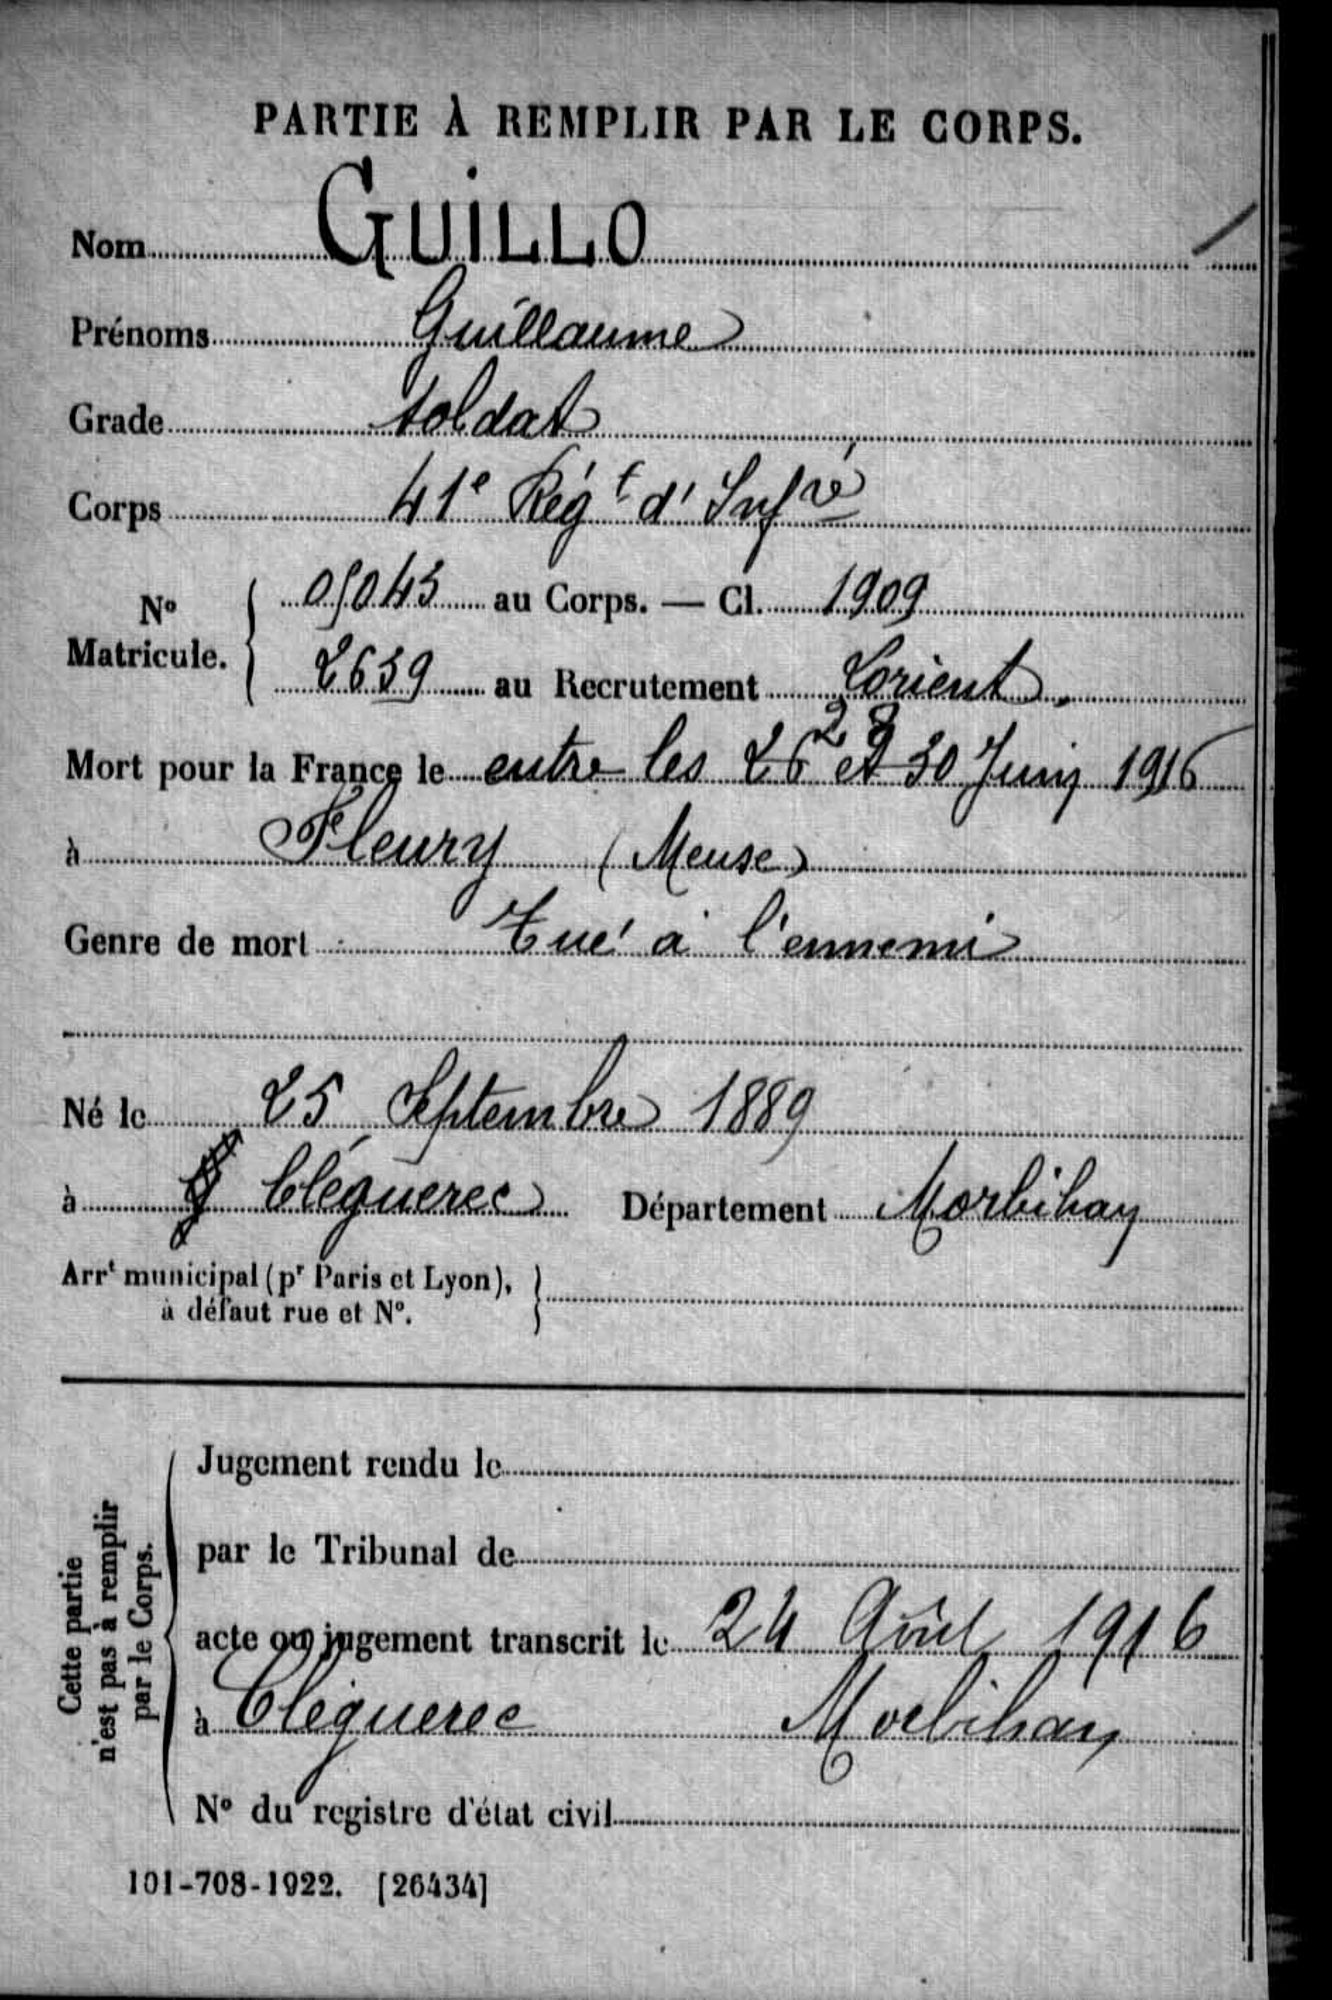 PARTIE À REMPLIR PAR LE CORPS.
Nom GUILLO
Prénoms Guillaume
Grade soldat
Corps 41e Régt d'Infrie
No Matricule. 05043 au Corps. — Cl. 1909
2639 au Recrutement Lorient.
28
Mort pour la France le entre les 26 et 30 Juin 1916
à Fleury (Meuse)
Genre de mort Tué à l'ennemi
Né le 25 Septembre 1889
à Cléguerec Département Morbihan
Arrt municipal (pr Paris et Lyon),
à défaut rue et No.
Cette partie
n'est pas à remplir
par le Corps.
Jugement rendu le
par le Tribunal de
acte ou jugement transcrit le 24 Août 1916
à Cléguerec Morbihan
No du registre d'état civil
101-708-1922. [26434]